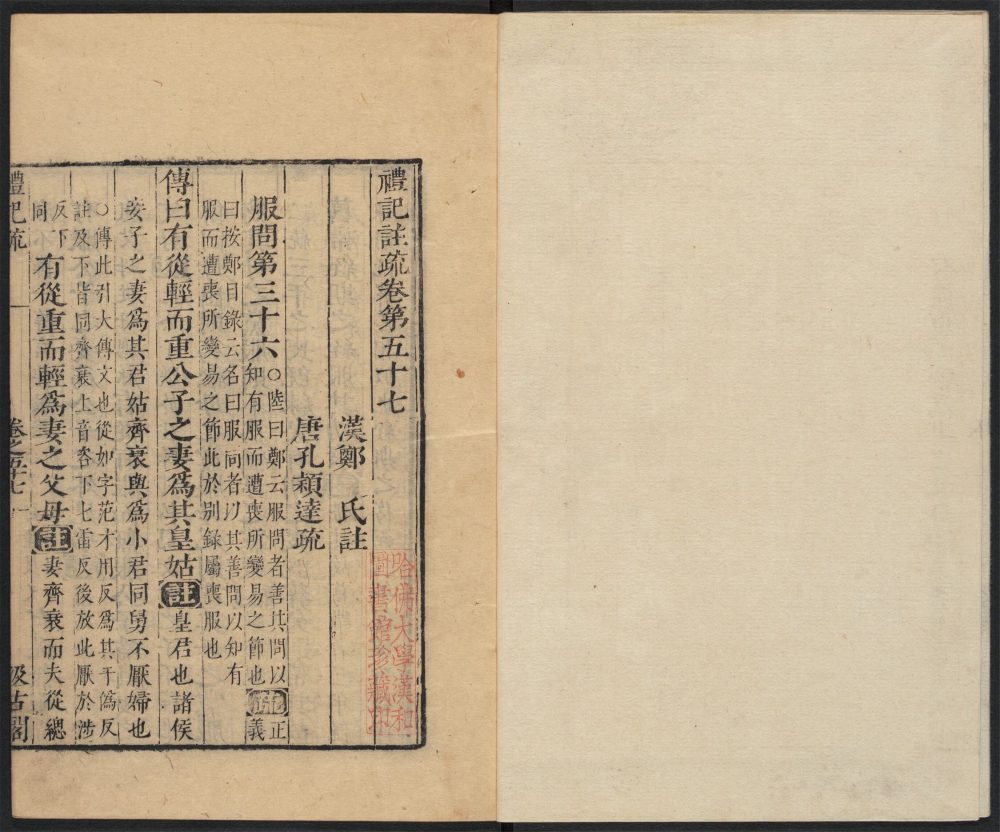 禮記註疏卷第五十七
漢鄭 氏註
唐孔穎達疏
服問第三十六○陸曰鄭云服問者善其問以
知有服而遭喪所變易之節也疏正義
曰按鄭目錄云名曰服問者以其善問以知有
服而遭喪所變易之節此於別錄屬喪服也
傳曰有從輕而重公子之妻爲其皇姑註皇君也諸侯
妾子之妻爲其君姑齊衰與爲小君同舅不厭婦也
○傳此引大傳文也從如字范才用反爲其于僞反
註及下皆同齊衰上音咨下七雷反後放此厭於涉
反下同
有從重而輕爲妻之父母註妻齊衰而夫從緦
禮記疏
卷之五十七
一
汲古閣
哈佛大學漢和
圖書館珍藏印